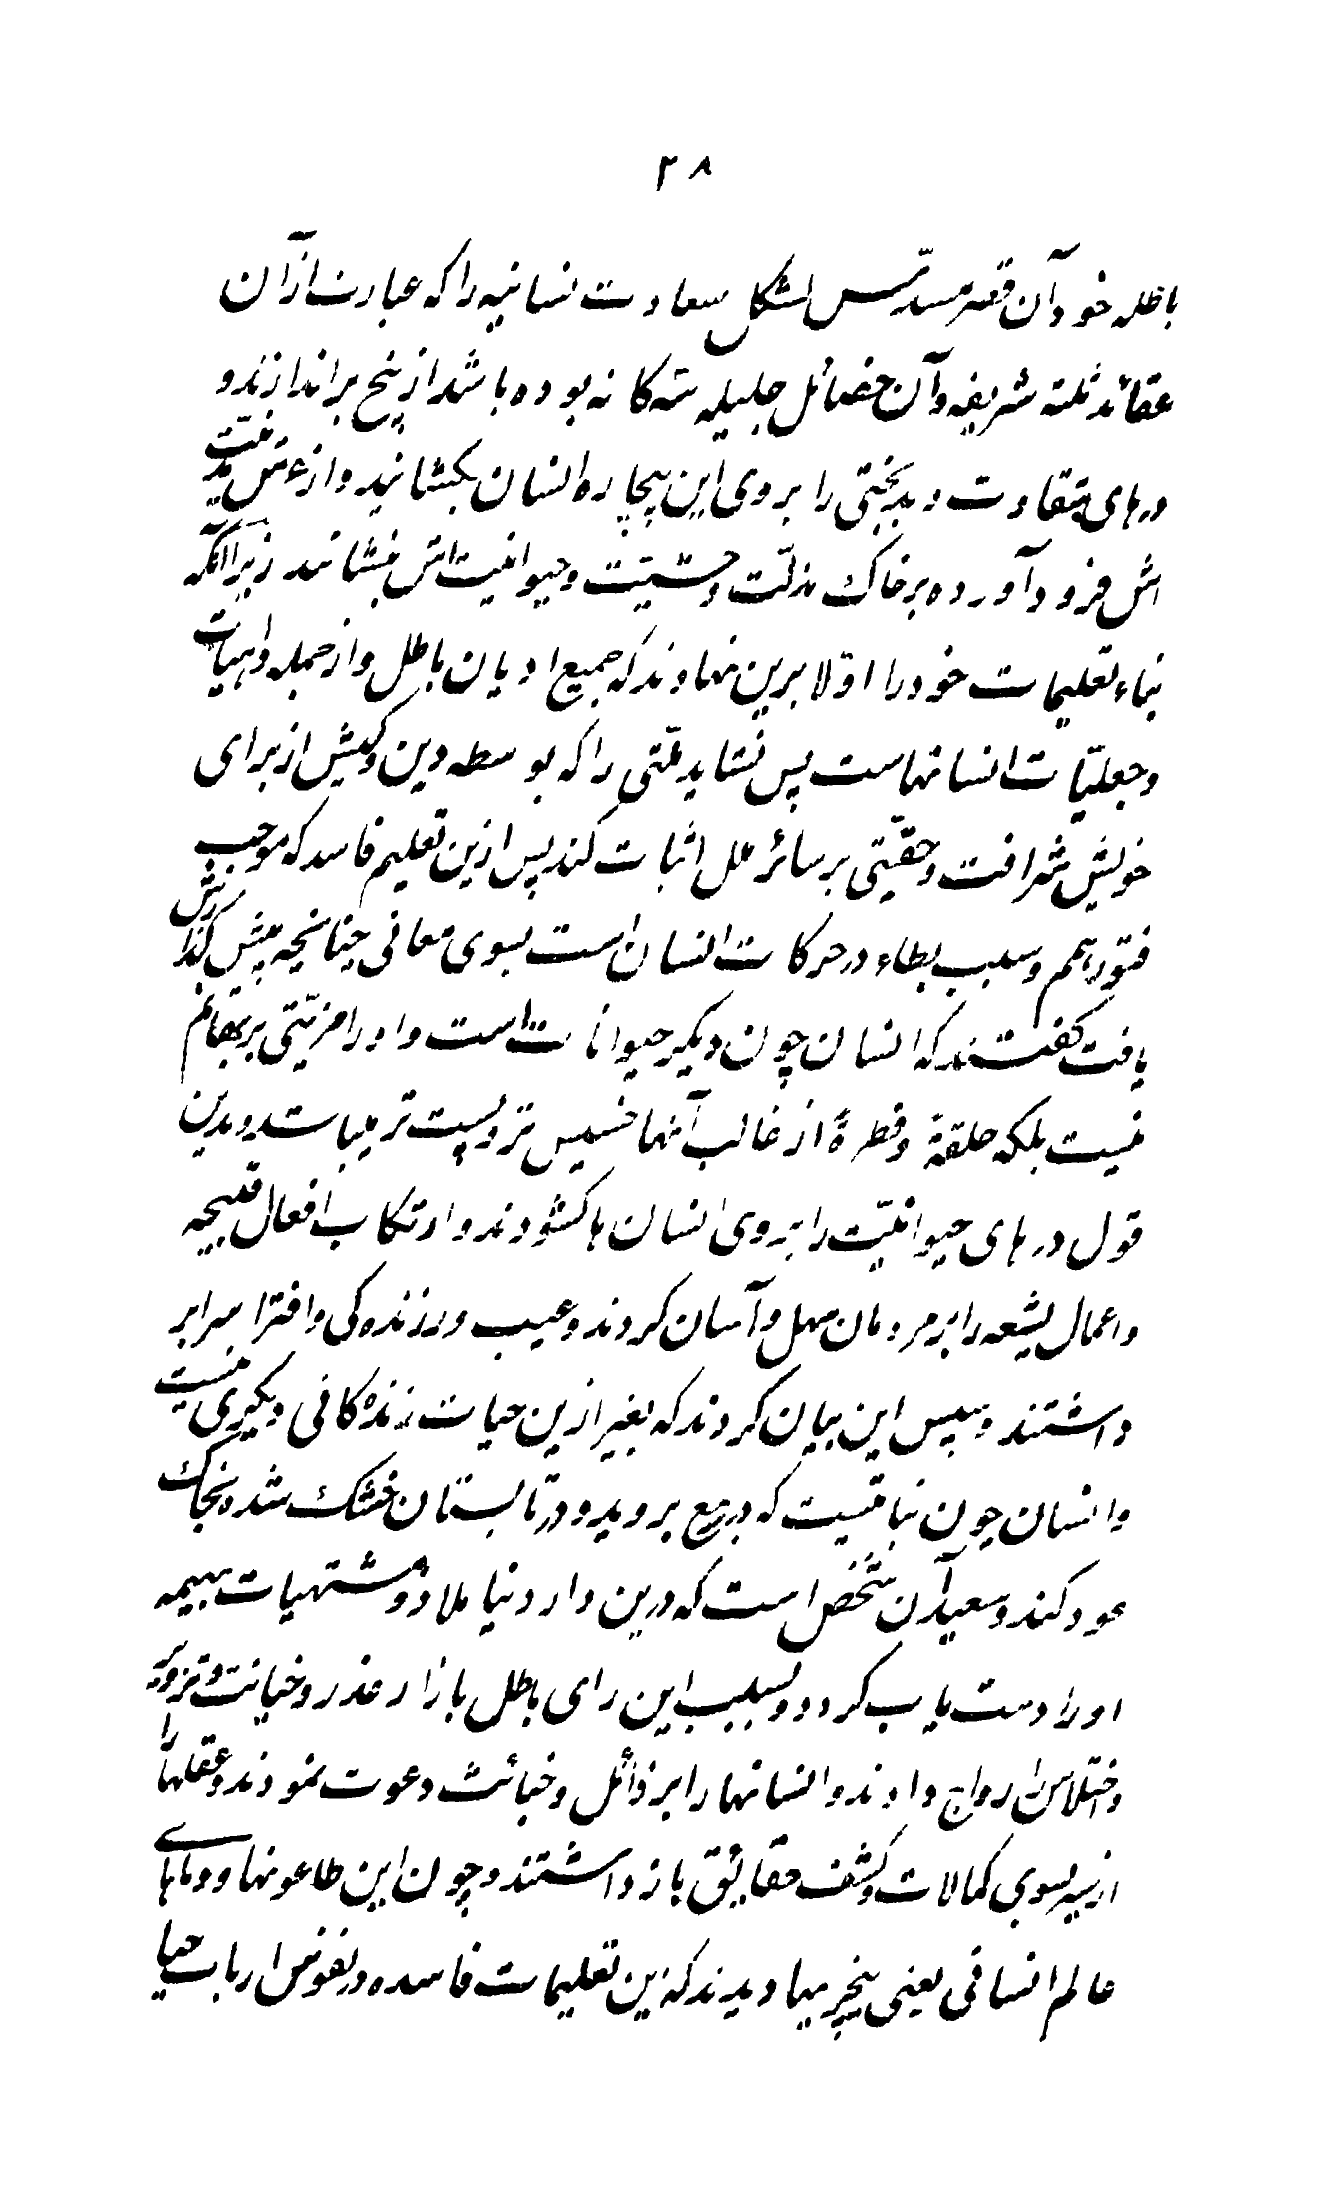 ۲۸
باطله خود آن قصر مسدّس الشکل سعادت انسانیه را که عبارت از آن
عقائد ثلثه شریفه و آن خصائل جلیله سه کانه بوده باشد از بیخ براندازند و
درهای شقاوت و بدبختی را بروی این بیچاره انسان بکشانید و از عرش مدنیّت
اش فرود آورده بر خاک مذلّت وحشیّت و حیوانیت اش بنشانند زیرا آنکه
بناء تعلیمات خود را اوّلا برین نهادند که جمیع ادیان باطل و از جمله واهیات
و جعلیّات انسانهاست پس نشاید ملّتی را که بوسطه دین و کیش از برای
خویش شرافت و حقیّتی بر سائر ملل اثبات کند پس ازین تعلیم فاسد که موجب
فتور همم و سبب بطاء در حرکات انسان است بسوی معالی چنانچه پیش گذارش
یافت کفتند که انسان چون دیکر حیوانات است و او را مزیّتی بر بهائم
نیست بلکه خلقةً و فطرةً از غالب آنها خسیس تر و پست تر میباشد و بدین
قول درهای حیوانیّت را بروی انسان ها کشودند و ارتکاب افعال قبیحه
و اعمال بشعه را بر مردمان سهل و آسان کردند و عیب درنده کی و افترا س را بر
داشتند و سپس این بیان کردند که بغیر ازین حیات زنده کانی دیکری نیست
و انسان چون نباتیست که در ربیع بروید و در تابستان خشک شده بخاک
عود کند و سعید آن شخص است که درین دار دنیا ملاذ و مشتهیات بهیمیه
او را دست یاب کردد و بسبب این رای باطل بازار غدر و خیانت و تزویر
و اختلاس را رواج دادند و انسانها را بر ذائل و خبائث دعوت نمودند و عقلها را
از سیر بسوی کمالات و کشف حقایق باز داشتند و چون این طاعونها و وباهای
عالم انسانی یعنی نیچریها دیدند که این تعلیمات فاسده در نفوس ارباب حیا